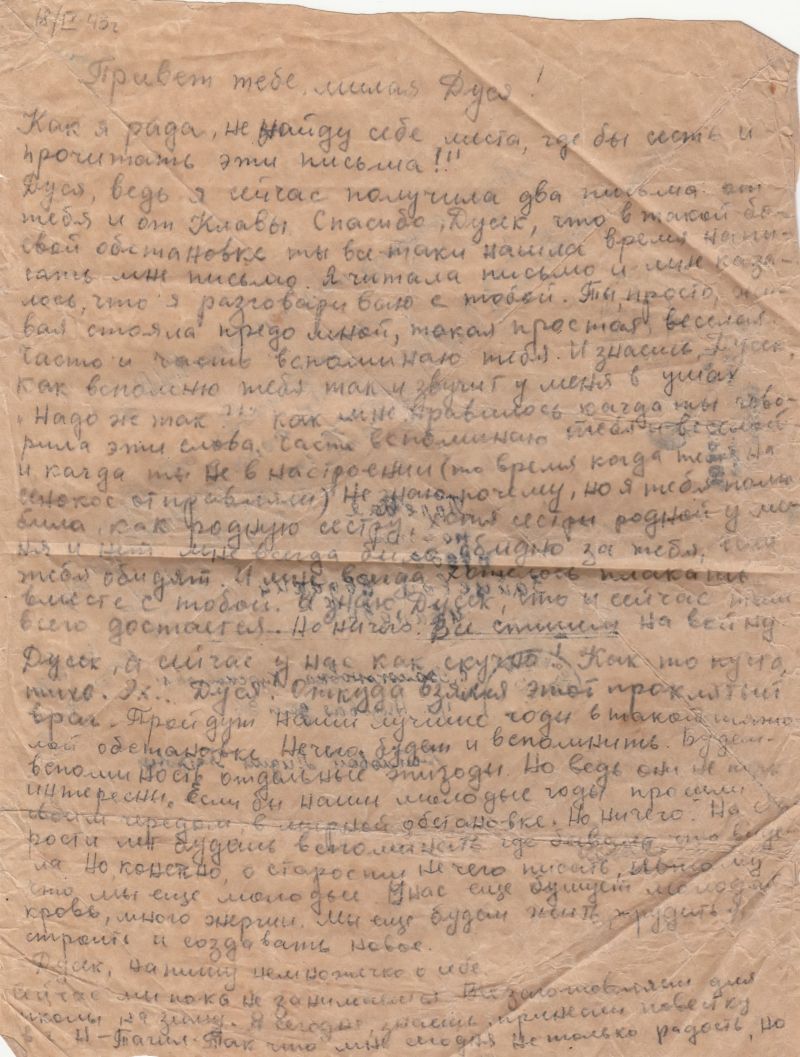 18/IX 43г
Привет тебе, милая Дуся!
Как я рада, не найду себе места, где бы сесть и
прочитать эти письма!!!
Дуся, ведь я сейчас получила два письма от
тебя и от Клавы. Спасибо, Дусек, что в такой бо-
евой обстановке ты все таки нашла время напи-
сать мне письмо. Я читала письмо и мне каза-
лось, что я разговариваю с тобой. Ты, просто, жи-
вая стояла предо мной, такая простая, веселая.
Часто и часто вспоминаю тебя. И знаешь, Дусек,
как вспомню тебя так и звучит у меня в ушах
"Надо же так" как мне нравилось когда ты гово-
рила эти слова. Часто вспоминаю тебя и веселой
и когда ты не в настроении (то время когда тебя на
сенокос отправляли) Не знаю почему, но я тебя полю
била, как родную сестру, сестры родной у ме-
ня и нет мне всегда было обидно за тебя, если
тебя обидят. И мне всегда хотелось плакать
вместе с тобой. Я знаю, Дусек, что и сейчас там
всего достается. Но ничего. Все спишем на войну
Дусек, а сейчас у нас как скучно! Как то пусто,
тихо. Эх.. Дуся. Откуда взялся этот проклятый
враг. Пройдут наши лучшие годы в такой тяже
лой обстановке. Нечего будет и вспомнить. Будем
вспоминать отдельные эпизоды. Но ведь они не
интересны. Если бы наши молодые годы прошли
своим чередом, в мирной обстановке. Но ничего. На с
рости лет будешь вспоминать где бывала, что виде
ла Но конечно, о старости нечего писать, потому
что мы еще молодые. У нас еще бушует молодая
кровь, много энергии. Мы еще будем жить, трудиться
строить и создавать новое.
Дусек, напишу немножечко о себе.
Сейчас мы пока не занимаемся. заготовляем для
школы на зиму. Я сегодня, знаешь, принесли повестку
в г Н-Тагил. Так что мне не только радость, но